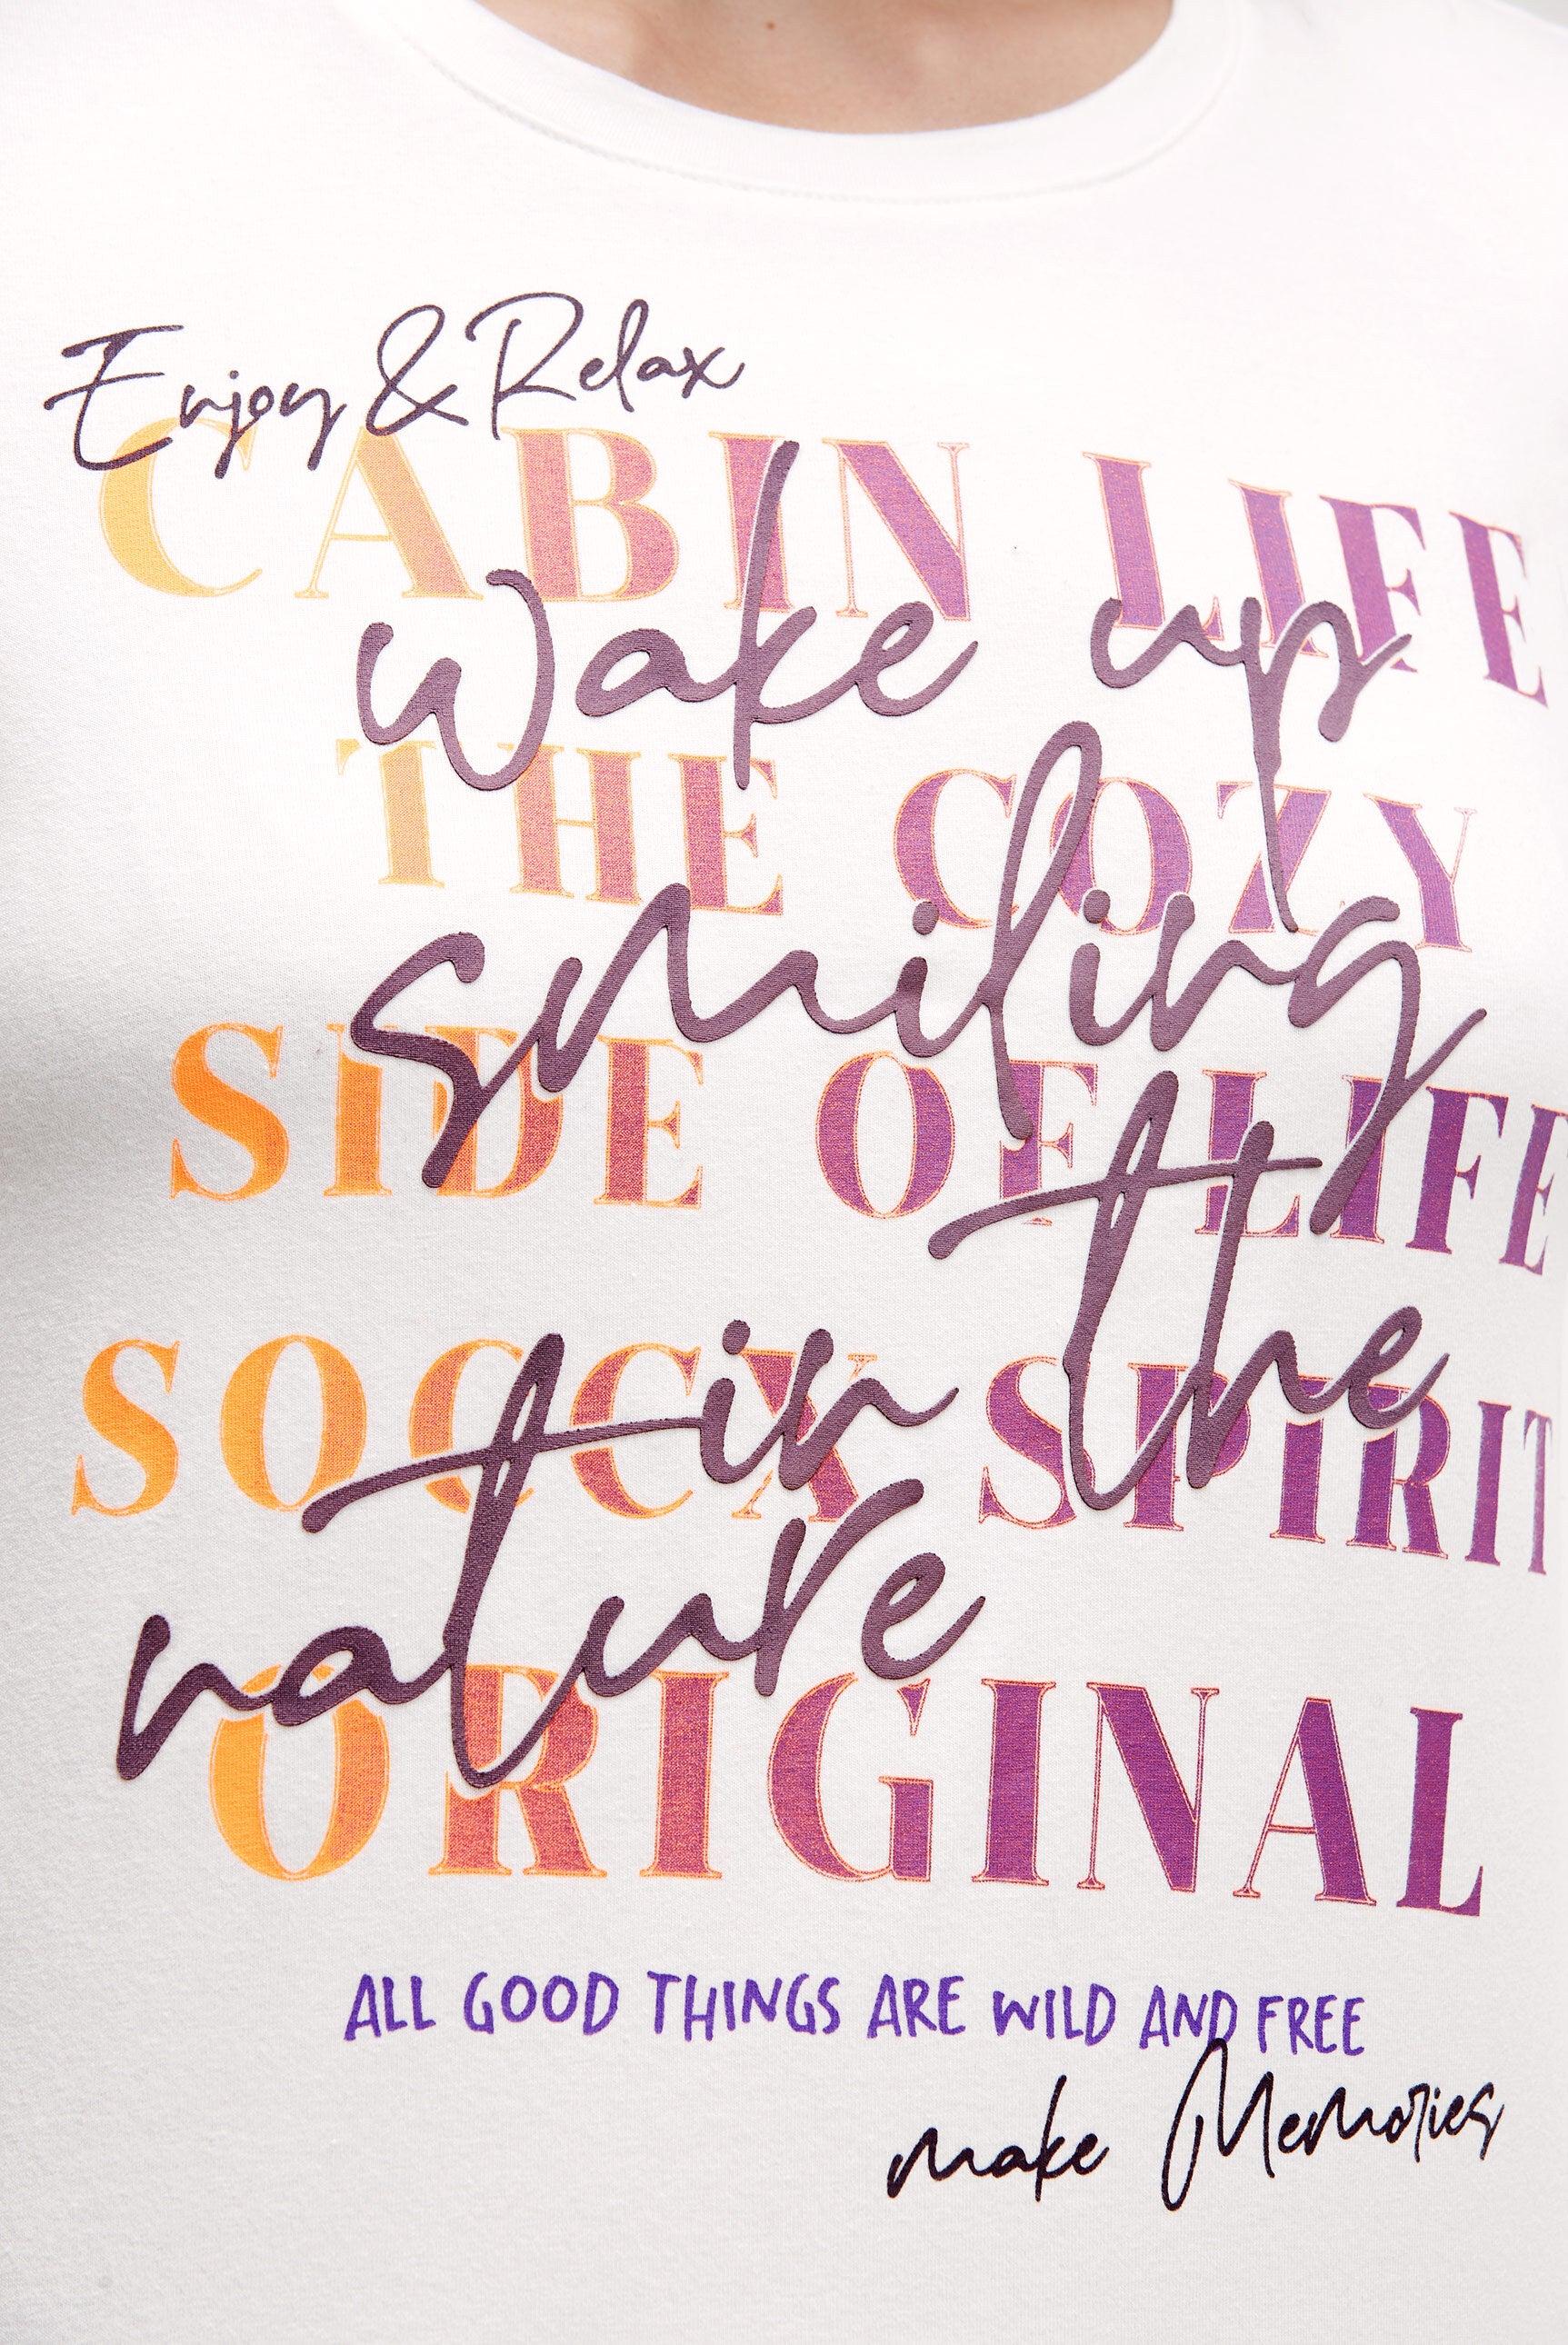 Enjoy & Relax
CABIN LIFE
Wake up
THE COZY
smiling
SIDE OF LIFE
the
SOCCX SPIRIT
in
nature
ORIGINAL
ALL GOOD THINGS ARE WILD AND FREE
make Memories